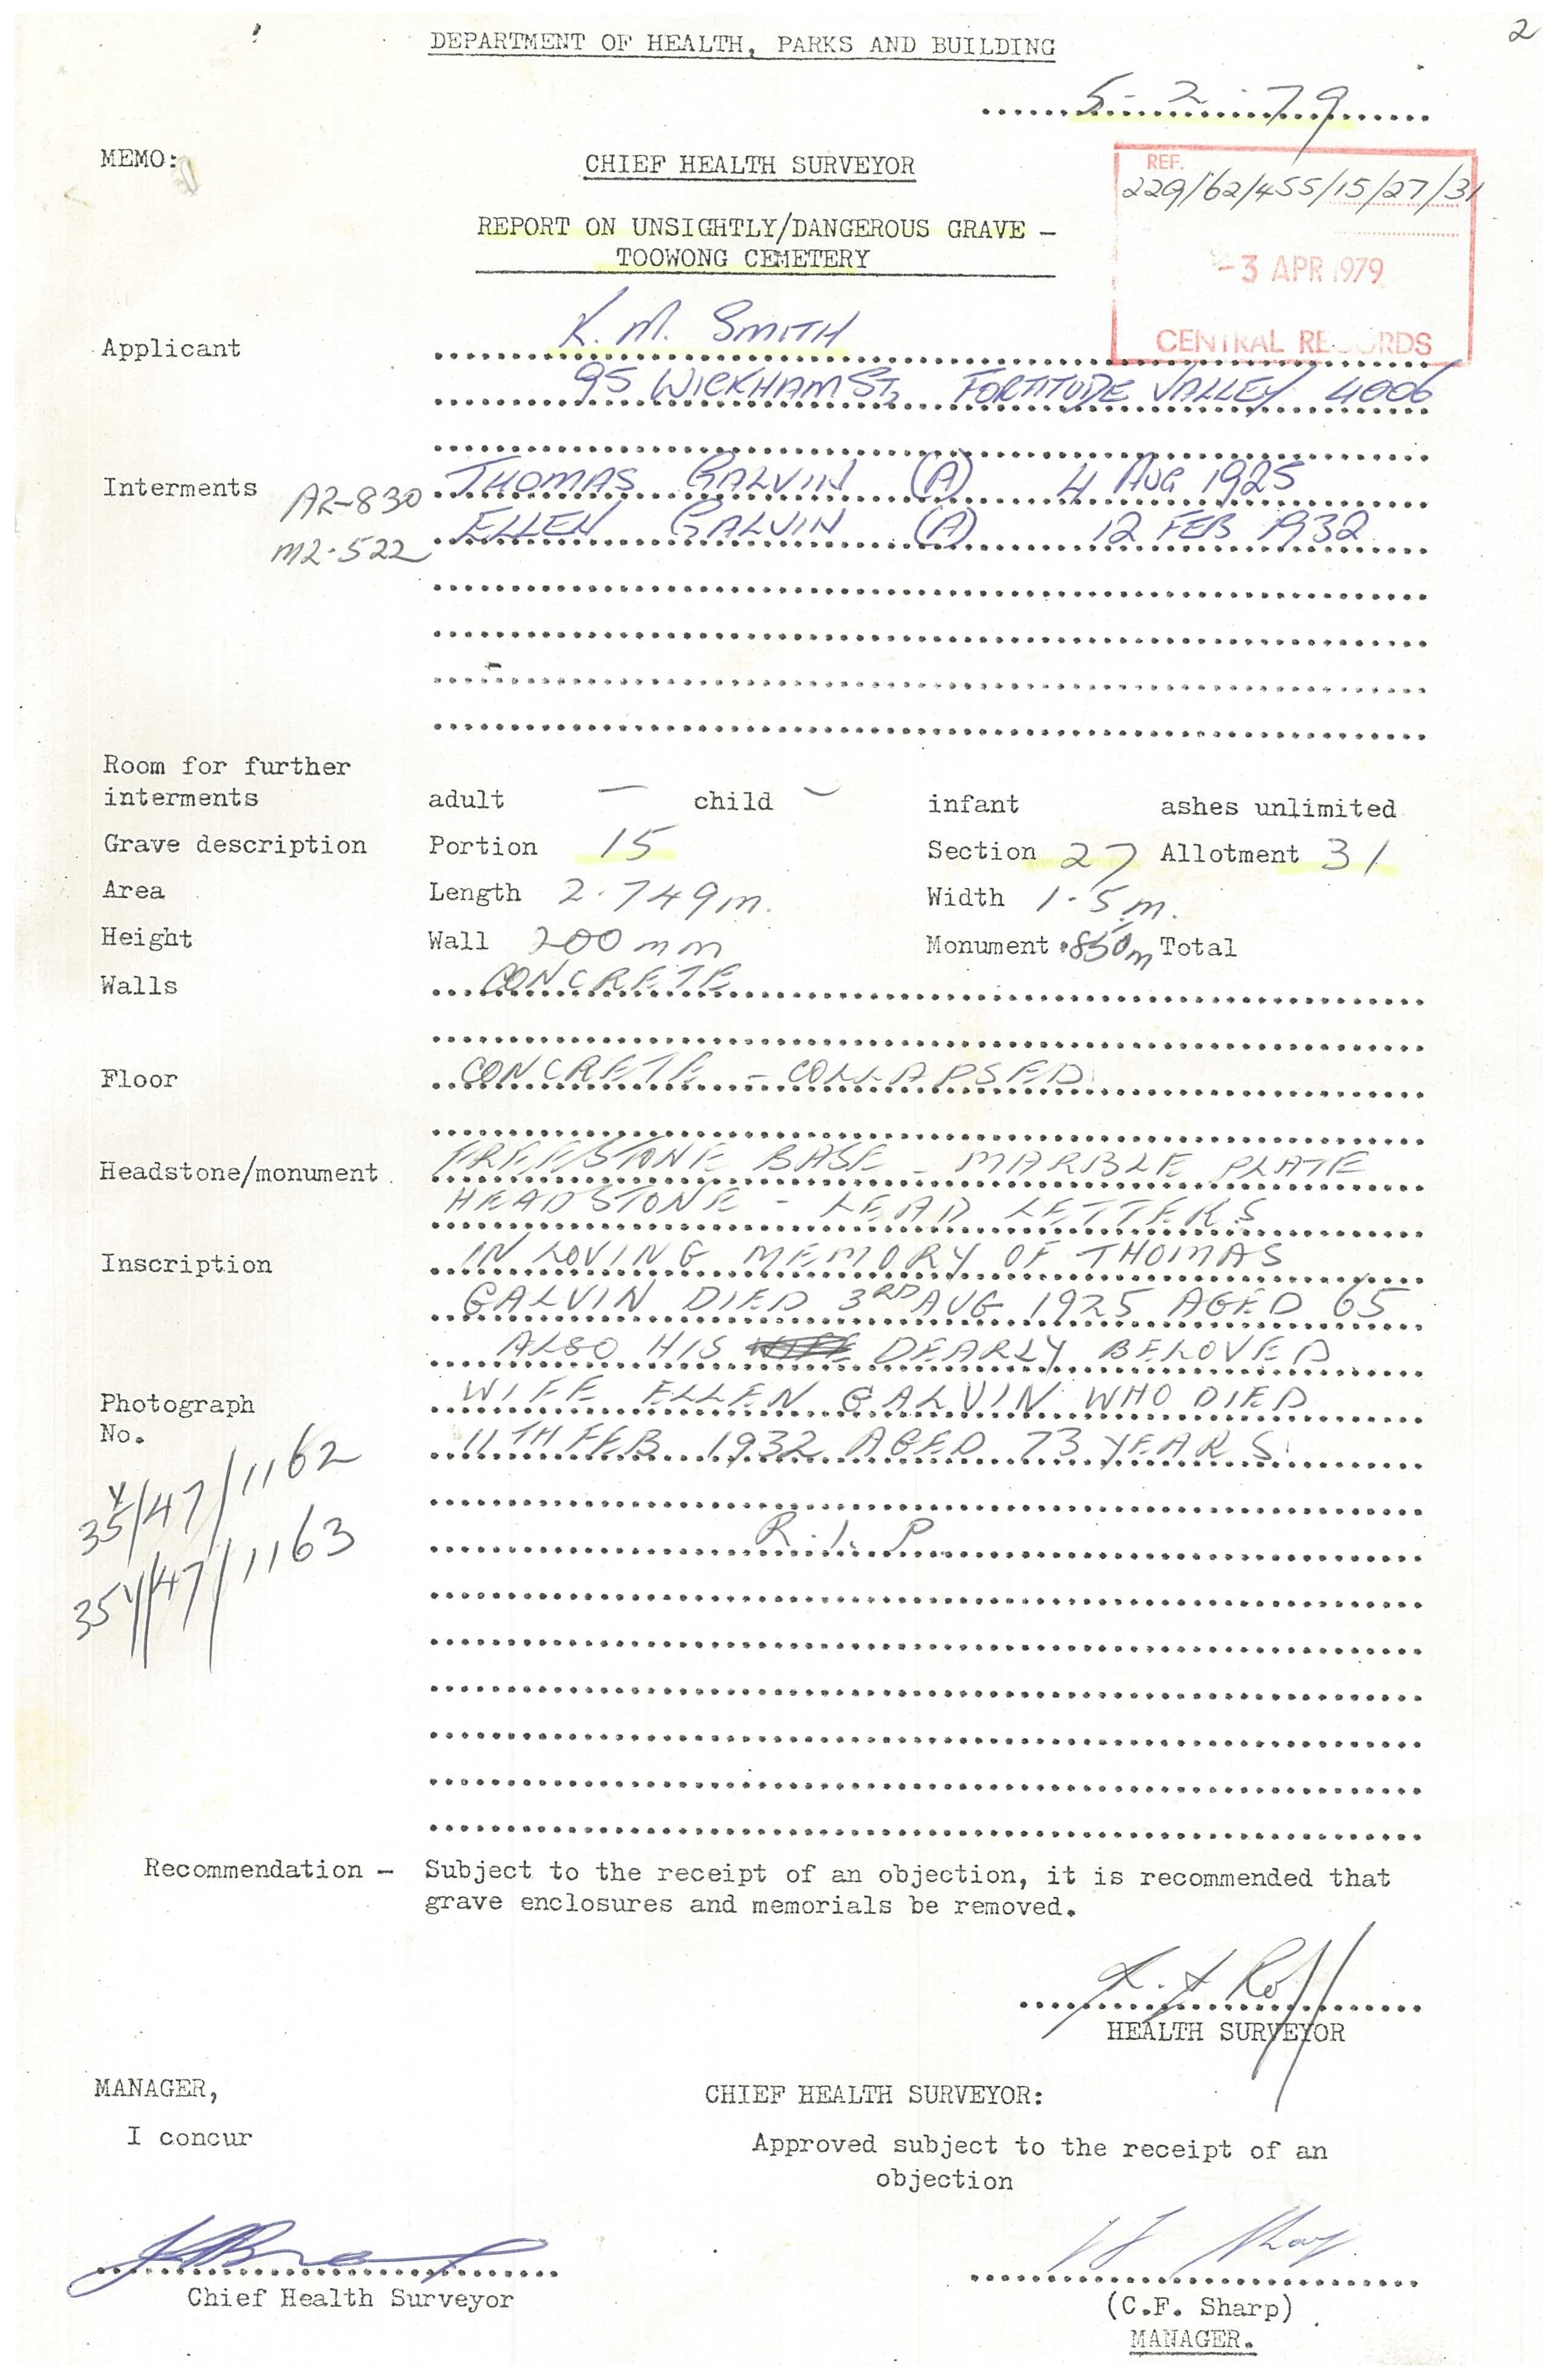 2
DEPARTMENT OF HEALTH, PARKS AND BUILDING
5-2-79
MEMO:
CHIEF HEALTH SURVEYOR
REF.
229/62/455/15/27/31
REPORT ON UNSIGHTLY/DANGEROUS GRAVE –
TOOWONG CEMETERY
-3 APR 1979
CENTRAL RECORDS
Applicant K. M. SMITH
95 WICKHAM ST, FORTITUDE VALLEY 4006
Interments A2-830 THOMAS GALVIN (A) 4 AUG 1925
M2-522 ELLEN GALVIN (A) 12 FEB 1932
Room for further
interments adult – child – infant ashes unlimited
Grave description Portion 15 Section 27 Allotment 31
Area Length 2.749m. Width 1.5m.
Height Wall 200mm Monument .850m Total
Walls CONCRETE
Floor CONCRETE - COLLAPSED
Headstone/monument FREESTONE BASE - MARBLE PLATE
HEADSTONE - LEAD LETTERS
Inscription IN LOVING MEMORY OF THOMAS
GALVIN DIED 3RD AUG 1925 AGED 65
ALSO HIS DEARLY BELOVED
Photograph WIFE ELLEN GALVIN WHO DIED
No. 11TH FEB 1932 AGED 73 YEARS
35Y/47/1162
R.I.P.
35Y/47/1163
Recommendation – Subject to the receipt of an objection, it is recommended that
grave enclosures and memorials be removed.
HEALTH SURVEYOR
MANAGER, CHIEF HEALTH SURVEYOR:
I concur Approved subject to the receipt of an
objection
Chief Health Surveyor
(C.F. Sharp)
MANAGER.